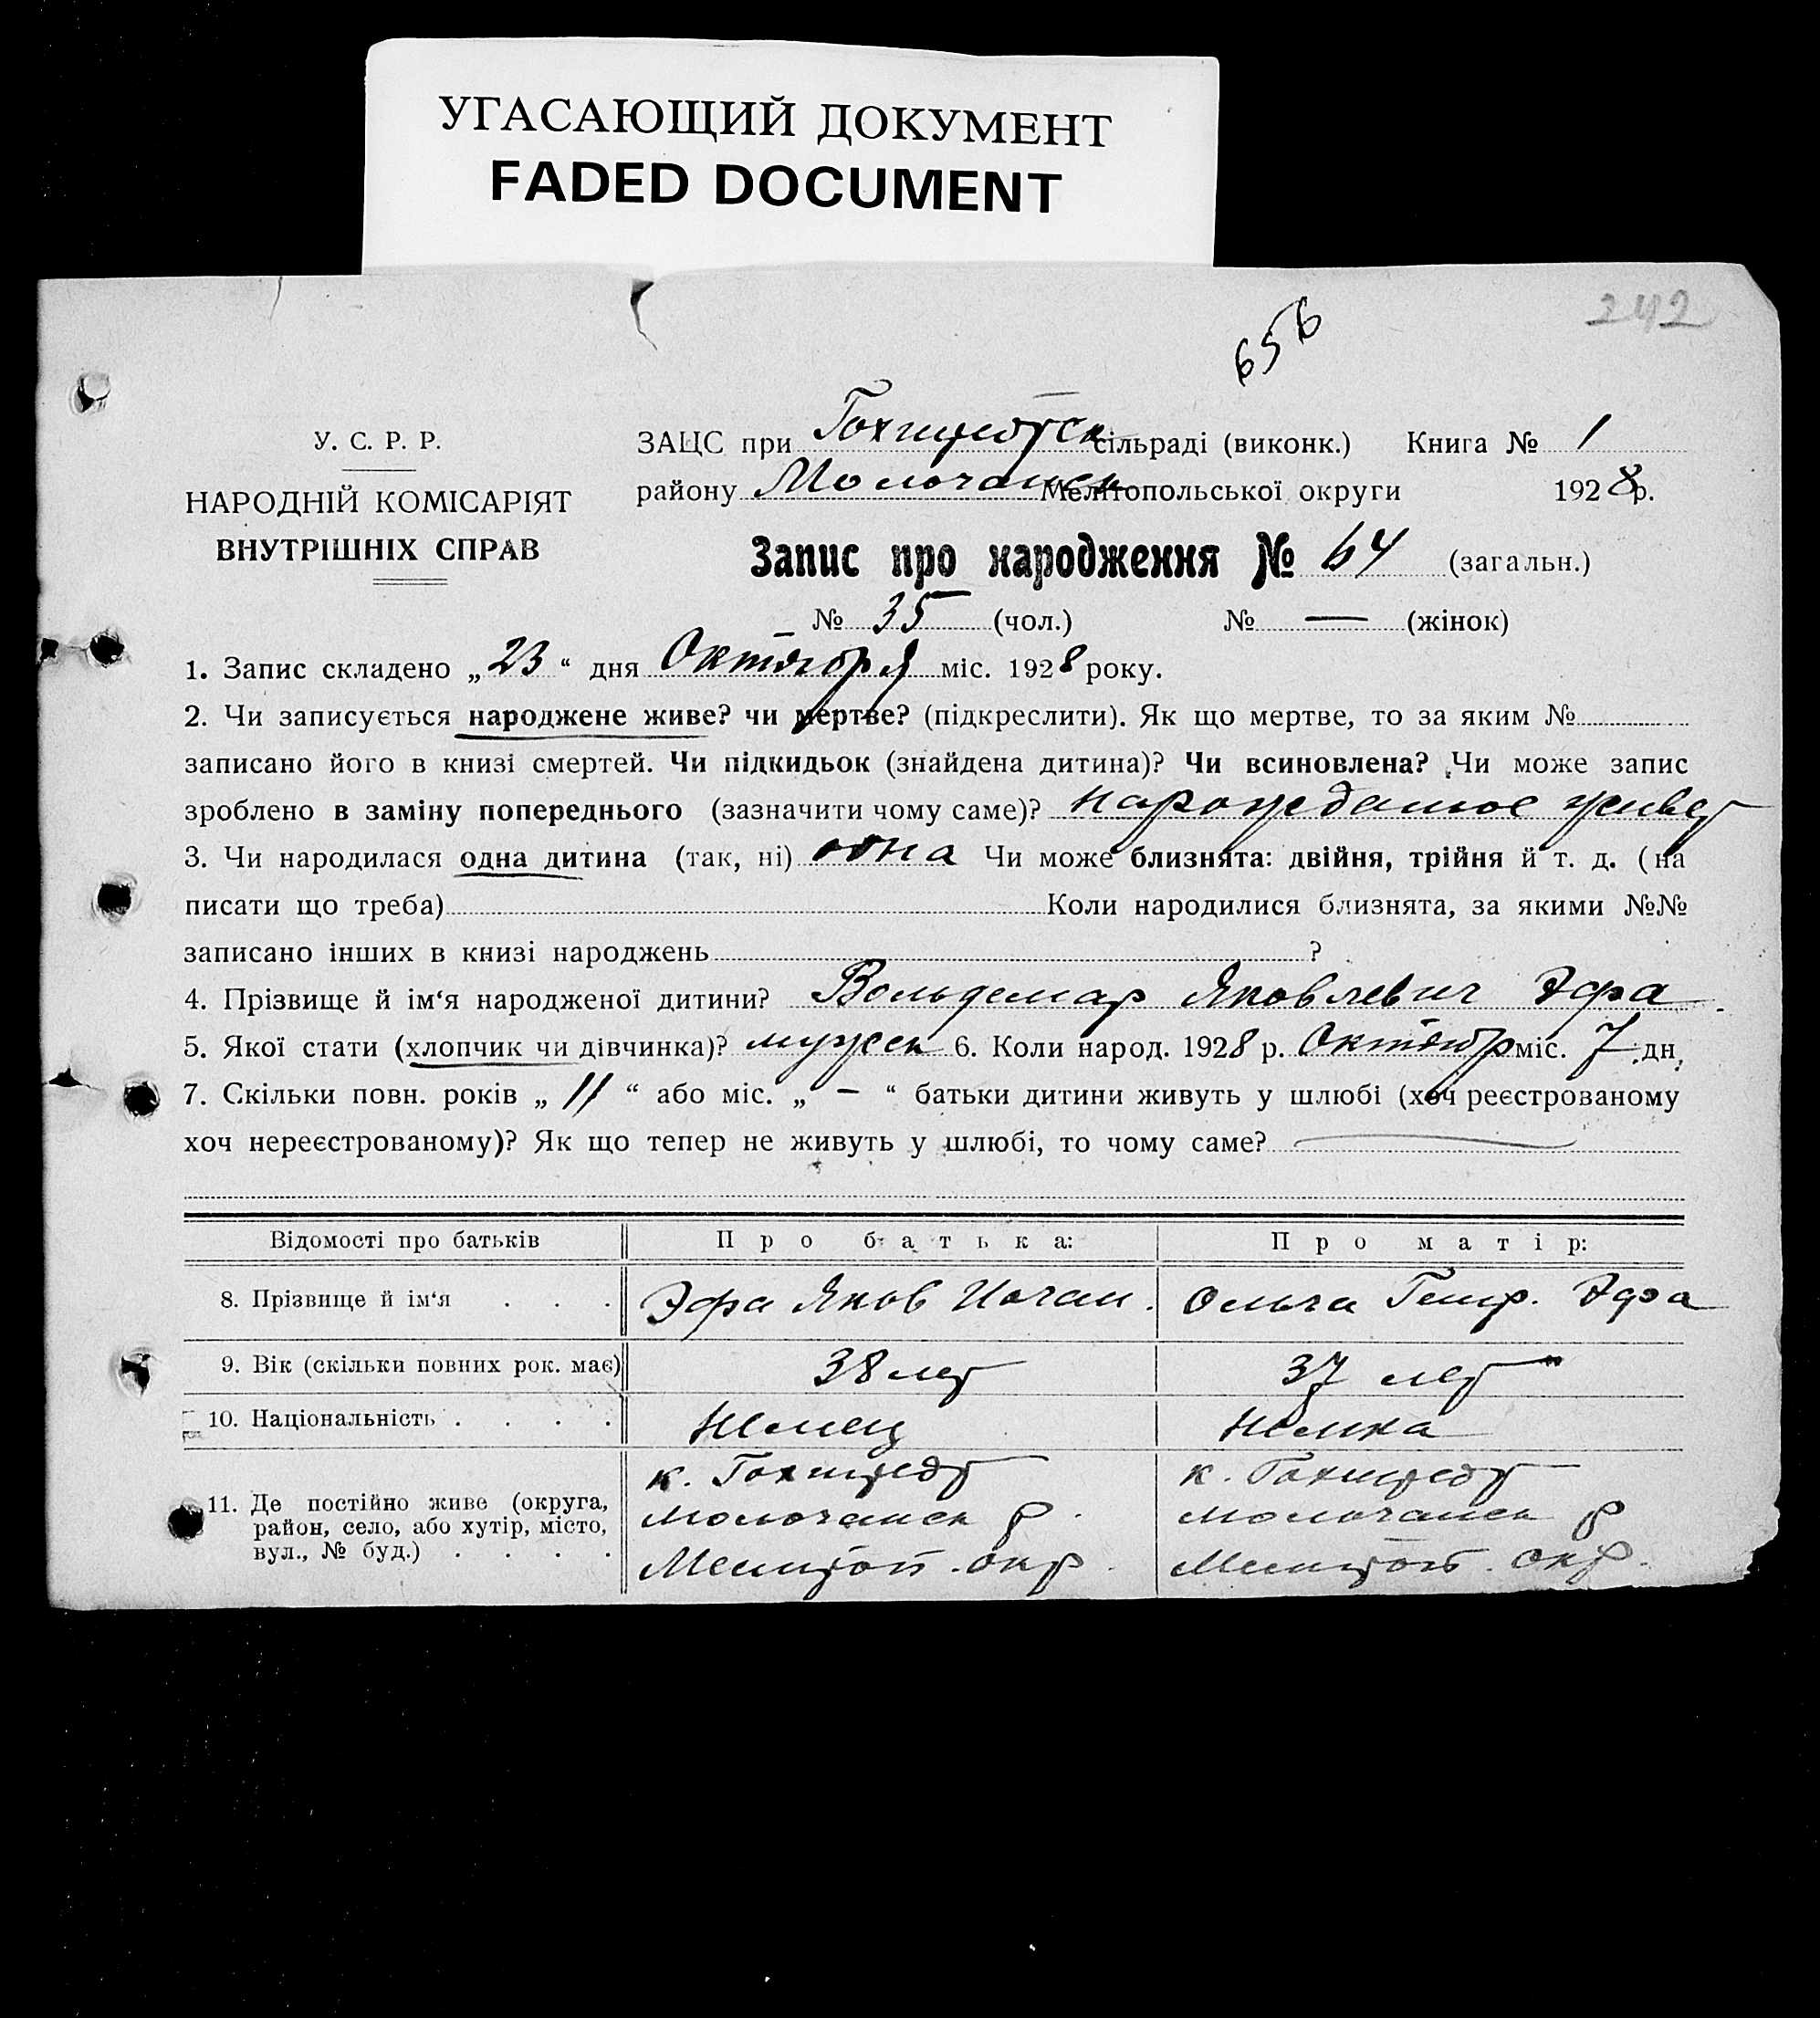 УГАСАЮЩИЙ ДОКУМЕНТ
FADED DOCUMENT
242
656
У. С. Р. Р.
НАРОДНІЙ КОМІСАРІЯТ
ВНУТРІШНІХ СПРАВ
ЗАЦС при Гохштедтск сільраді (виконк.) Книга № 1
району Молочанск Мелітопольської округи 1928 р.
Запис про народження № 64 (загальн.)
№ 35 (чол.) № — (жінок)
1. Запис складено „ 23 “ дня Октября міс. 1928 року.
2. Чи записується народжене живе? чи мертве? (підкреслити). Як що мертве, то за яким №
записано його в книзі смертей. Чи підкидьок (знайдена дитина)? Чи всиновлена? Чи може запис
зроблено в заміну попереднього (зазначити чому саме)?
3. Чи народилася одна дитина (так, ні) одна Чи може близнята: двійня, трійня й т. д. (на
писати що треба) Коли народилися близнята, за якими №№
записано інших в книзі народжень ?
4. Прізвище й ім‘я народженої дитини? Вольдемар Яковлевич Эфа
5. Якої стати (хлопчик чи дівчинка)? мужск 6. Коли народ. 1928 р. Октябр міс. 7 дн.
7. Скільки повн. років „ 11 “ або міс. „ — “ батьки дитини живуть у шлюбі (хоч реєстрованому
хоч нереєстрованому)? Як що тепер не живуть у шлюбі, то чому саме?
Відомості про батьків Про батька: Про матір:
8. Прізвище й ім‘я . . . Эфа Яков Иоган. Ольга Генр. Эфа
9. Вік (скільки повних рок. має) 38 лет 37 лет
10. Національність . . . . Немец Немка
11. Де постійно живе (округа, район, село, або хутір, місто, вул., № буд.) . . . .
к. Гохштедт
Молочанск р.
Мелитоп. окр.
к. Гохштедт
Молочанск р
Мелитоп. окр.